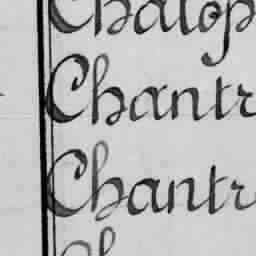 Chalop
Chantr
Chantr